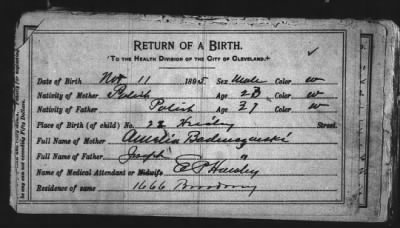 RETURN OF A BIRTH.
To the Health Division of the City of Cleveland.
Date of Birth Nov 11 1895 Sex Male Color w
Nativity of Mother Polish Age 23 Color w
Nativity of Father Polish Age 27 Color w
Place of Birth (of child) No. 22 Street.
Full Name of Mother Amelia
Full Name of Father Joseph "
Name of Medical Attendant or Midwife
Residence of same 1666 Broadway